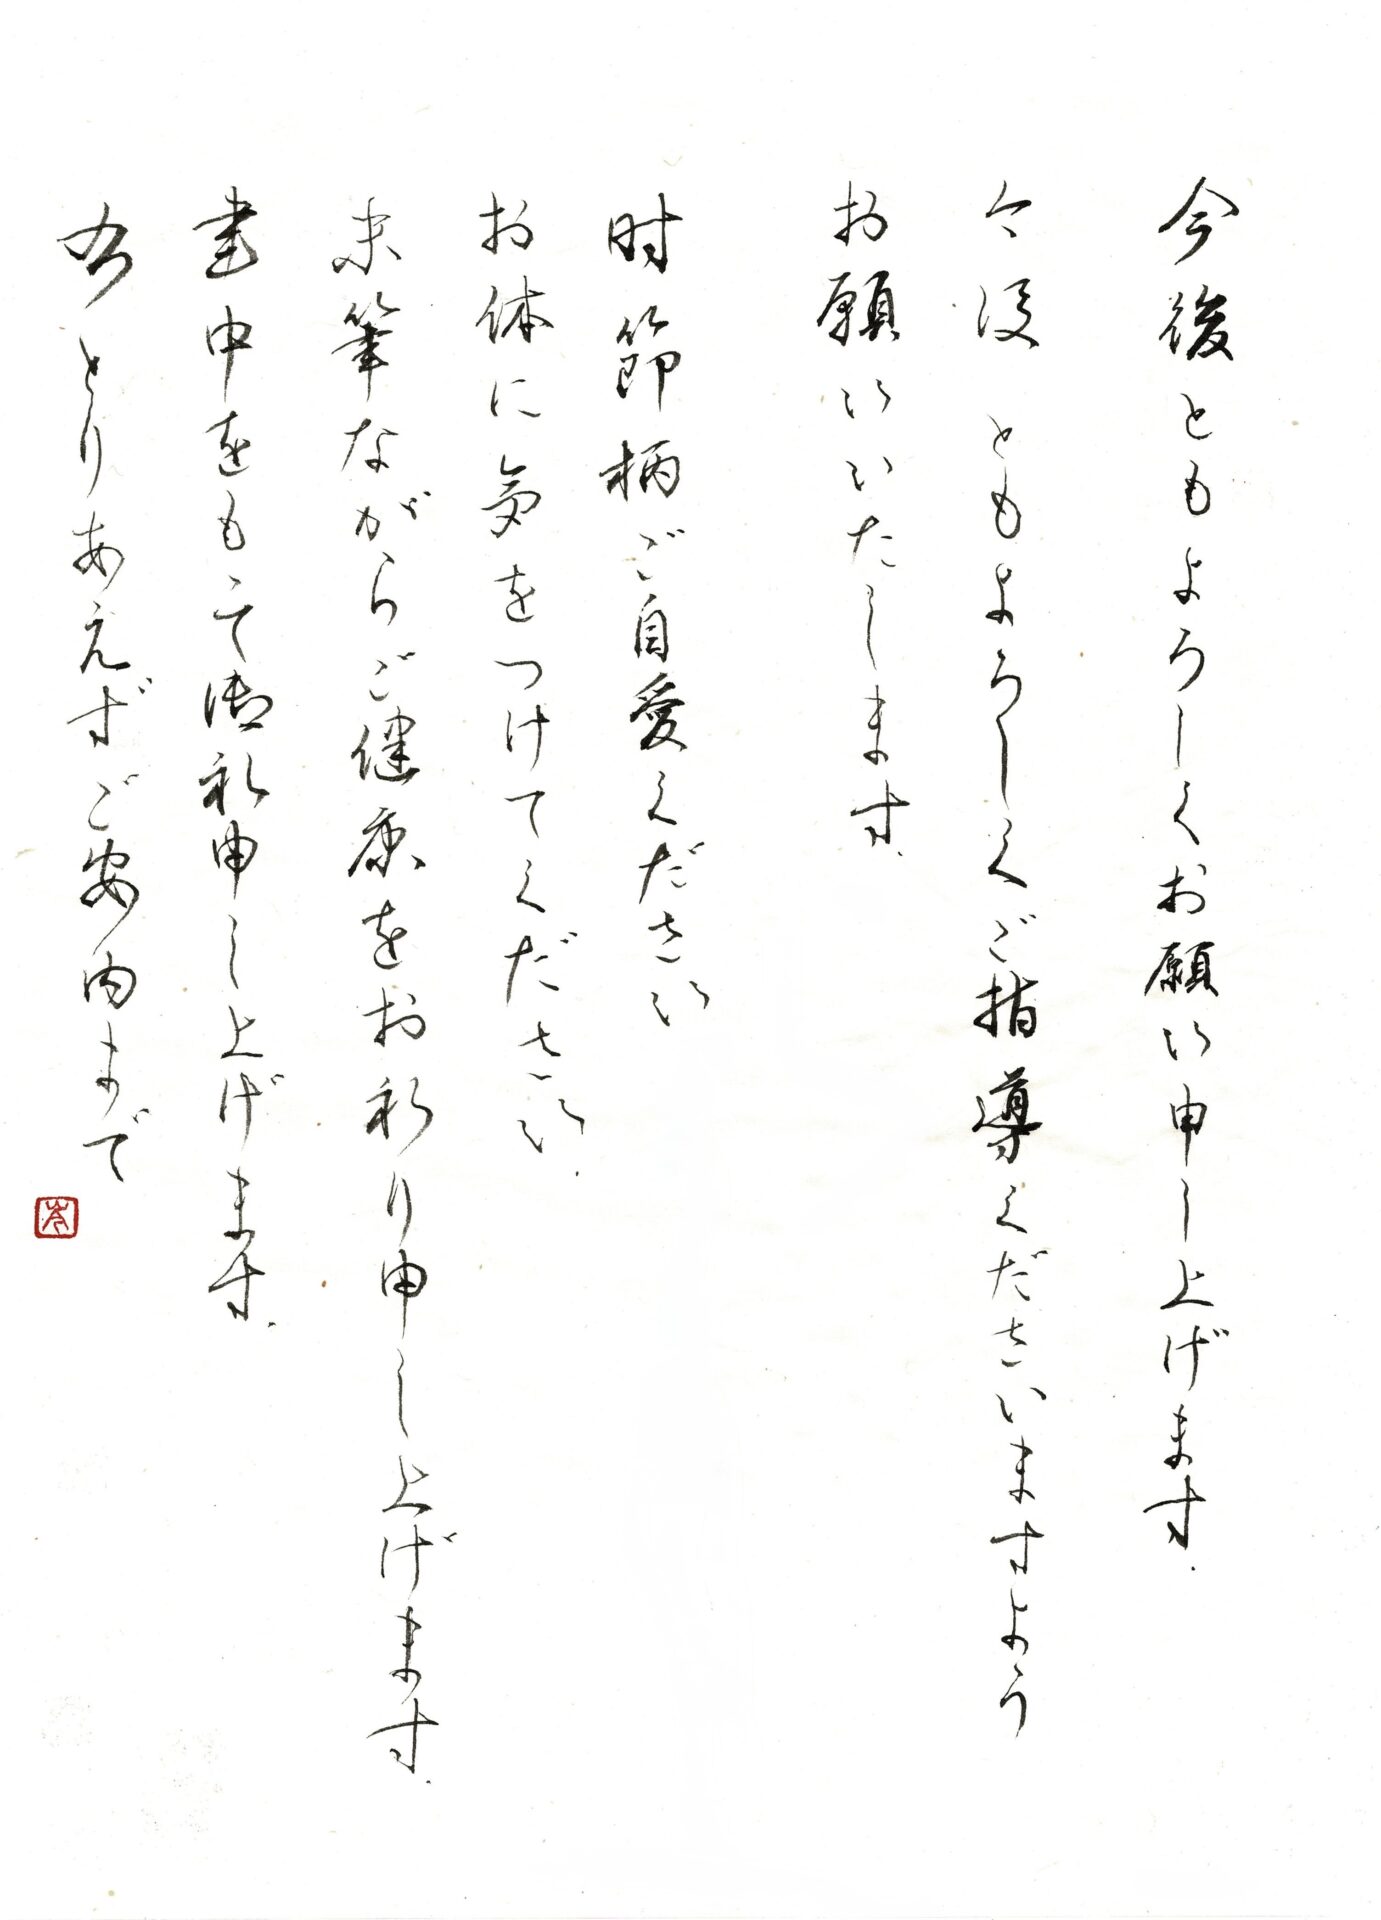 今後ともよろしくお願い申し上げます
今後ともよろしくご指導くださいますよう
お願いいたします
時節柄ご自愛ください
お体に気をつけてください
末筆ながらご健康をお祈り申し上げます
書中をもって御礼申し上げます
右とりあえずご案内まで